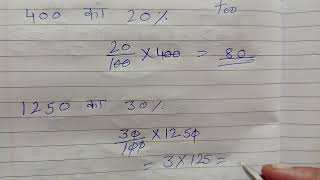 400 का 20%
100
20/100 × 400 = 80
1250 का 30%
30/100 × 1250
= 3 × 125 =